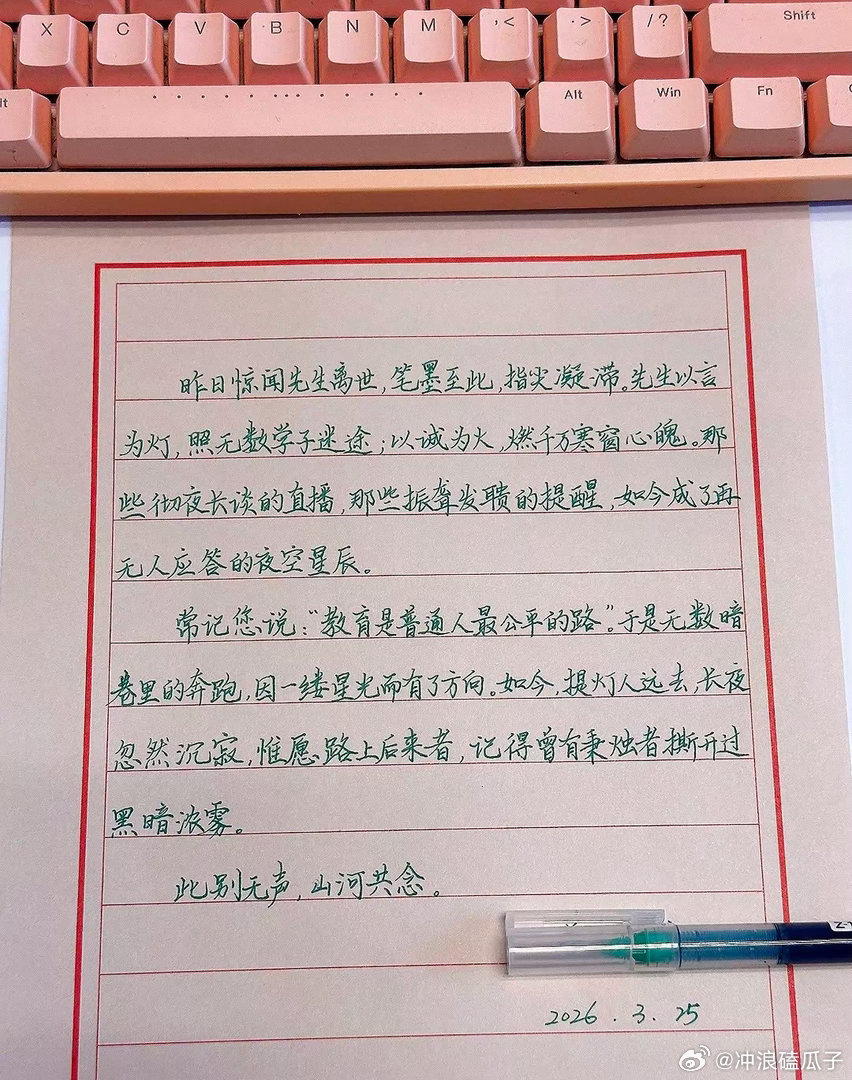 X C V B N M ,< .> /? Shift
Alt Win Fn
昨日惊闻先生离世,笔墨至此,指尖凝滞。先生以言
为灯,照无数学子迷途;以诚为火,燃千万寒窗心魄。那
些彻夜长谈的直播,那些振聋发聩的提醒,如今成了再
无人应答的夜空星辰。
常记您说:“教育是普通人最公平的路”。于是无数暗
巷里的奔跑,因一缕星光而有了方向。如今,提灯人远去,长夜
忽然沉寂,惟愿路上后来者,记得曾有秉烛者撕开过
黑暗浓雾。
此别无声,山河共念。
2026.3.25
@冲浪磕瓜子